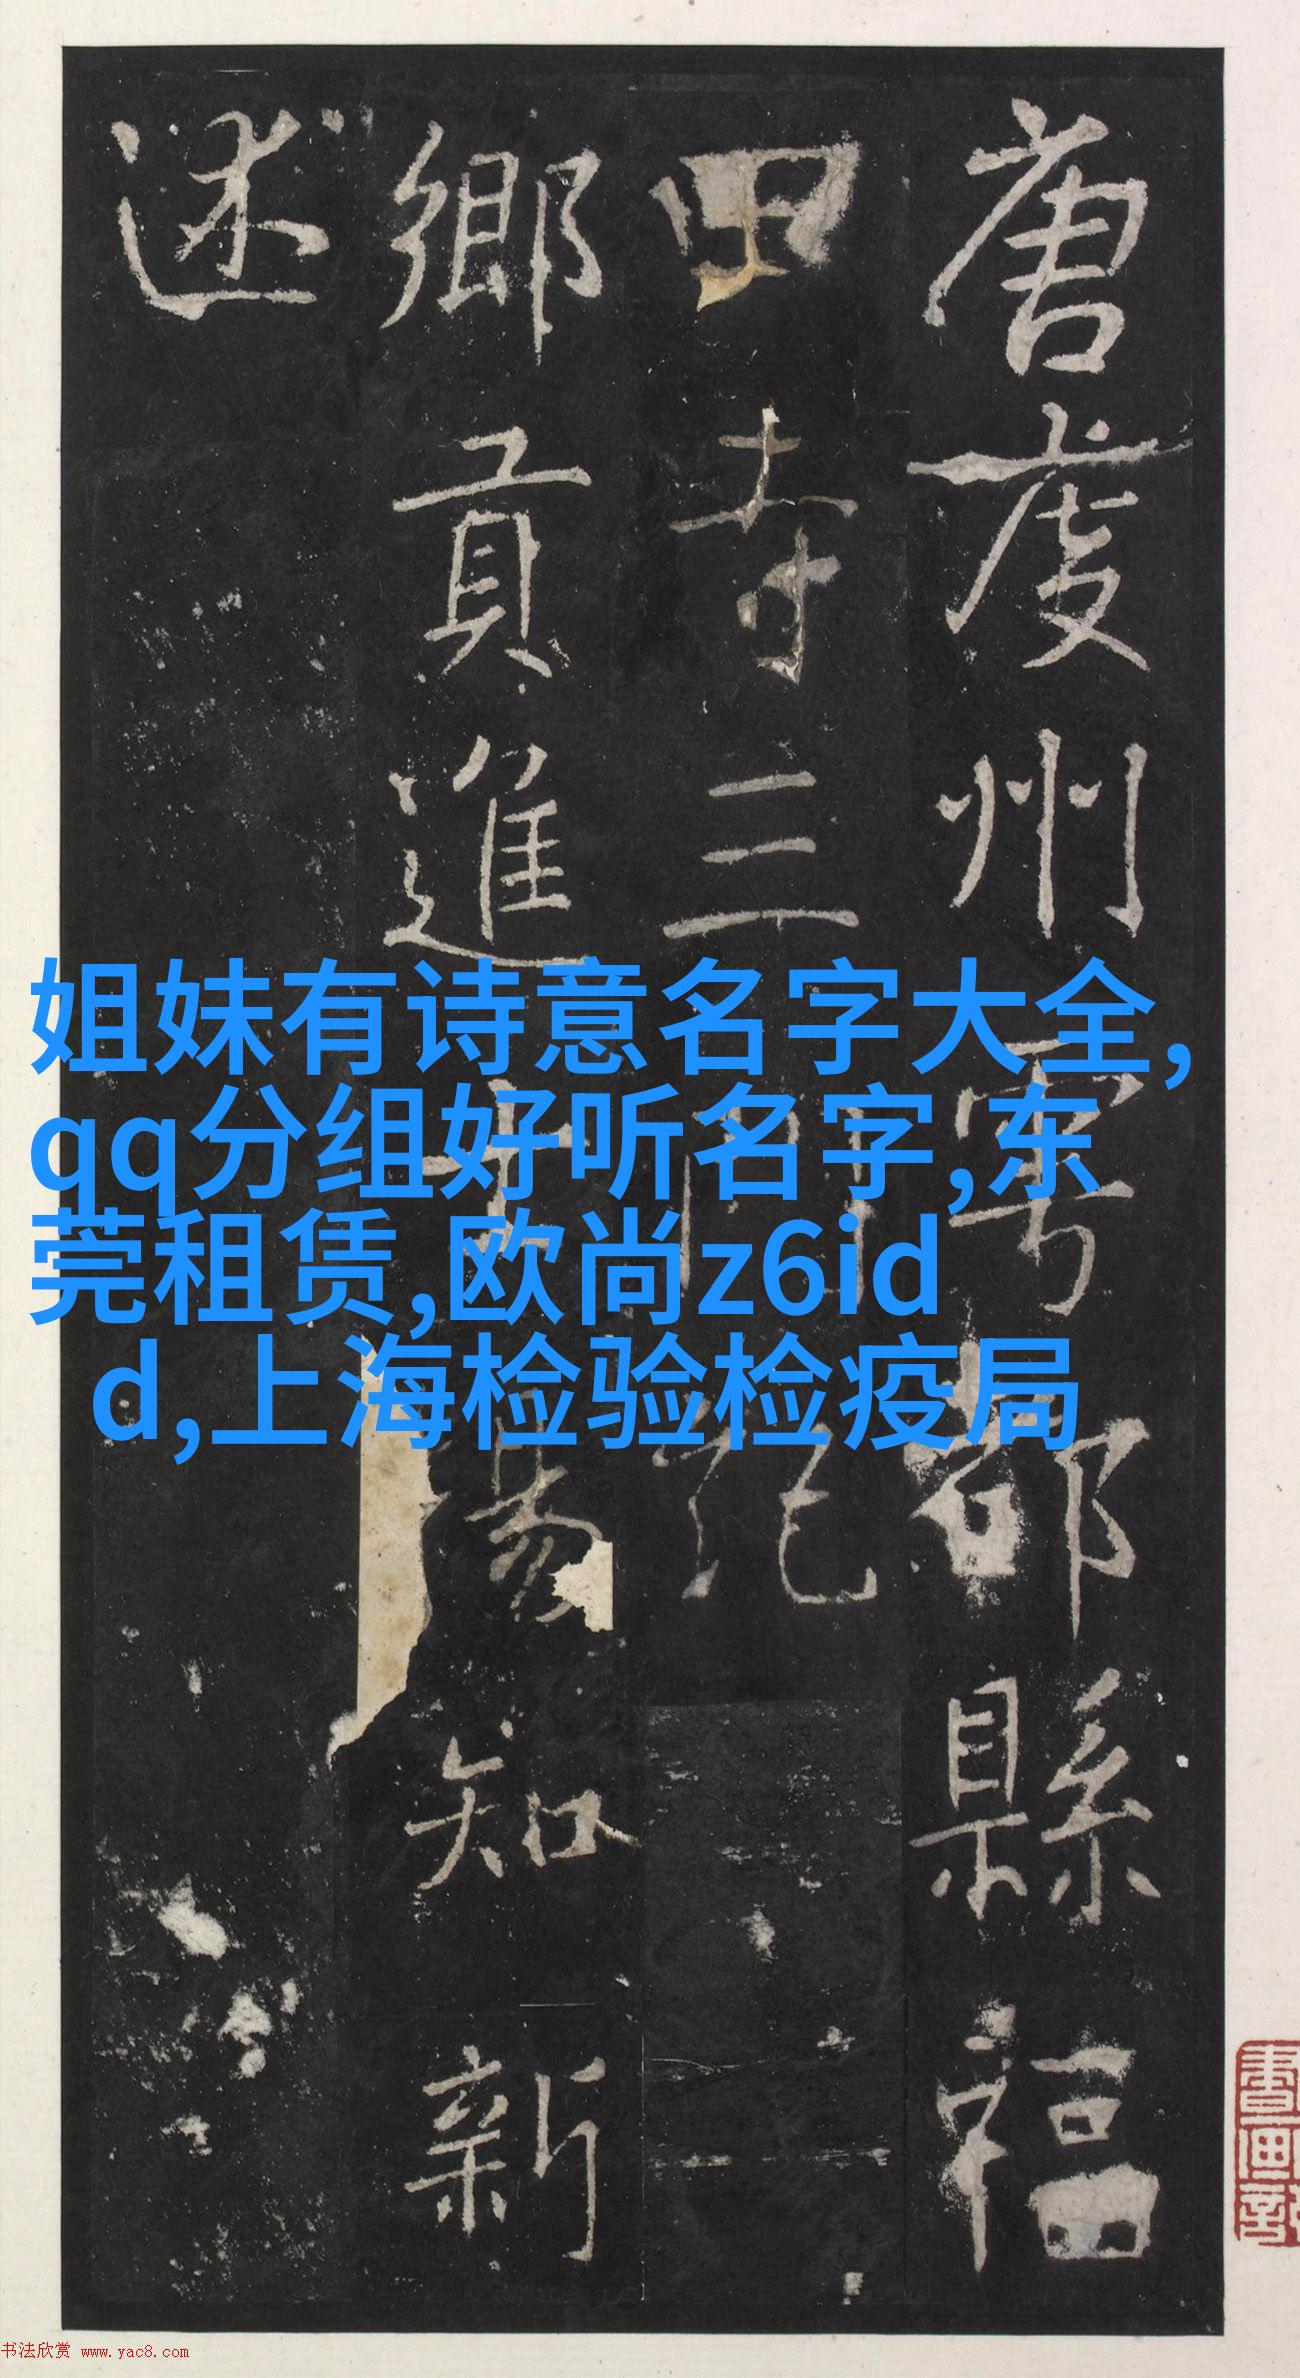 唐虔州雩都縣福
田寺三門記
鄉貢進士易知新
述
姐妹有诗意名字大全,
qq分组好听名字,东
莞租赁,欧尚z6id
d,上海检验检疫局
書画
书法欣赏 www.yac8.com